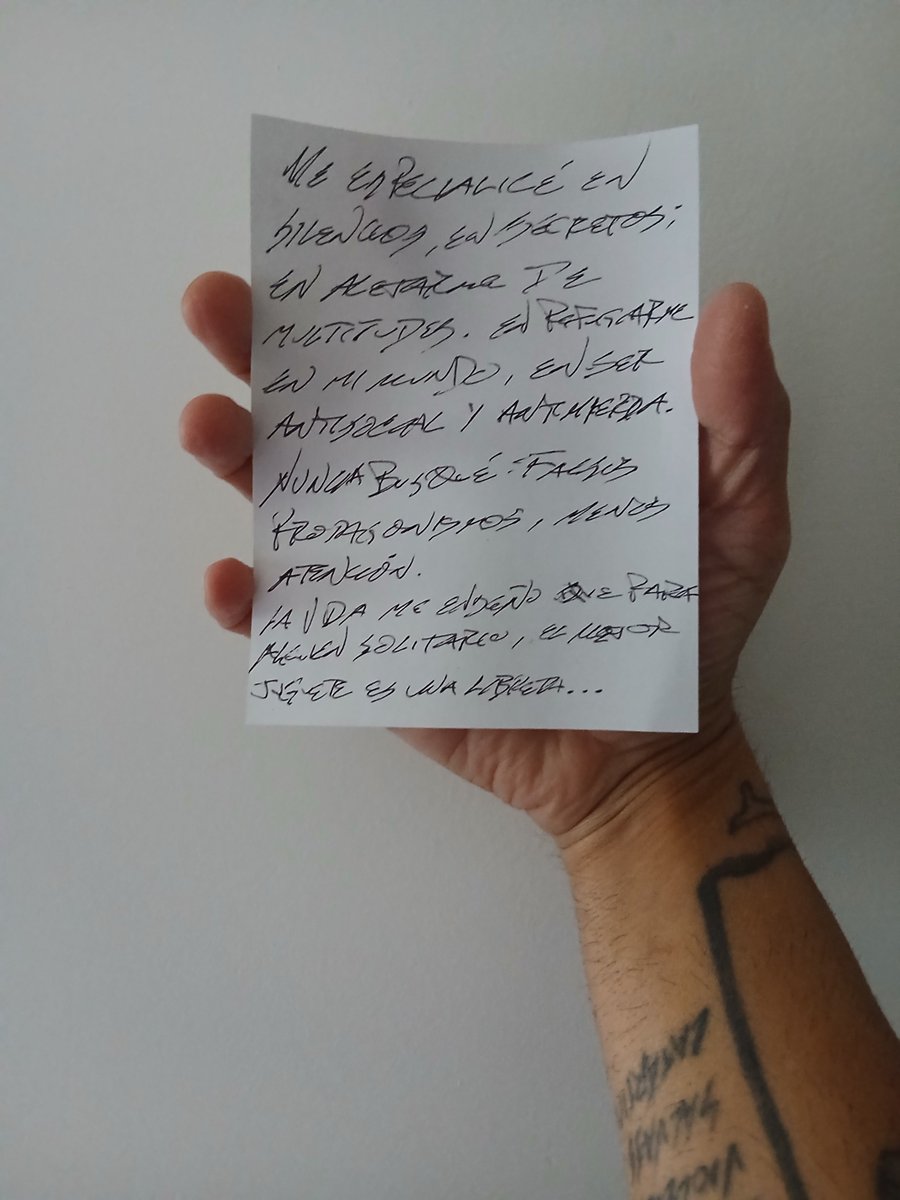 ME ESPECIALICÉ EN
SILENCIOS, EN SECRETOS;
EN ALEJARME DE
MULTITUDES. EN REFUGIARME
EN MI MUNDO, EN SER
ANTISOCIAL Y ANTIMIERDA.
NUNCA BUSQUÉ FALSOS
PROTAGONISMOS, MENOS
ATENCIÓN.
LA VIDA ME ENSEÑÓ QUE PARA
ALGUIEN SOLITARIO, EL MEJOR
JUGUETE ES UNA LIBRETA...